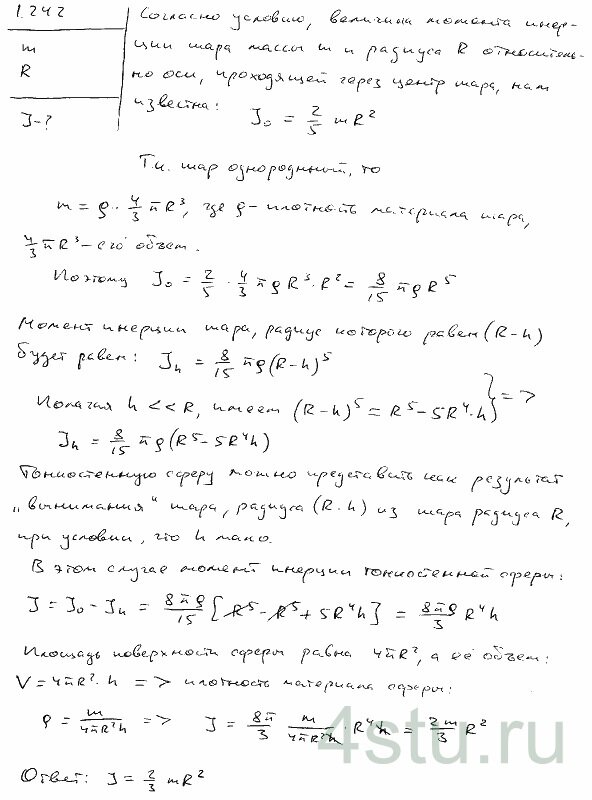 1.242
m
R
J-?
Согласно условию, величина момента инер-
ции шара массы m и радиуса R относитель-
но оси, проходящей через центр шара, нам
известна: J₀ = 2/5 mR²
Т.к. шар однородный, то
m = ρ · 4/3 πR³, где ρ - плотность материала шара,
4/3 πR³ - его объем.
Поэтому J₀ = 2/5 · 4/3 πρR³·R² = 8/15 πρR⁵
Момент инерции шара, радиус которого равен (R-h)
будет равен: Jₕ = 8/15 πρ(R-h)⁵
Полагая h << R, имеем (R-h)⁵ = R⁵ - 5R⁴·h } =>
Jₕ = 8/15 πρ(R⁵ - 5R⁴h)
Тонкостенную сферу можно представить как результат
„вынимания“ шара, радиуса (R-h) из шара радиуса R,
при условии, что h мало.
В этом случае момент инерции тонкостенной сферы:
J = J₀ - Jₕ = 8πρ/15 [R⁵ - R⁵ + 5R⁴h] = 8πρ/3 R⁴h
Площадь поверхности сферы равна 4πR², а её объем:
V = 4πR²·h => плотность материала сферы:
ρ = m/4πR²h => J = 8π/3 m/4πR²h · R⁴h = 2m/3 R²
4stu.ru
Ответ: J = 2/3 mR²